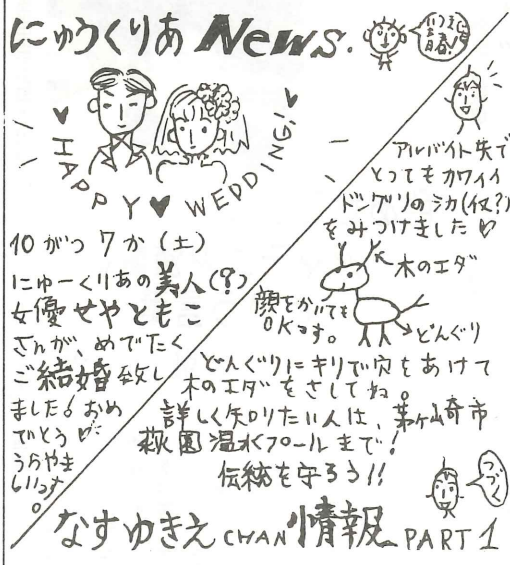 にゅうくりあ News.
いつまでも
青春!
HAPPY♥WEDDING!
10がつ7か(土)
にゅーくりあの美人(?)
女優せやともこ
さんが、めでたく
ご結婚致し
ました!おめ
でとう♡
うらやま
しいっす
。
アルバイト先で
とってもカワイイ
ドングリのシカ(仮?)
をみつけました♡
木のエダ
顔をかいても
OKっす。
どんぐり
どんぐりにキリで穴をあけて
木のエダをさしてね。
詳しく知りたい人は、茅ヶ崎市
萩園温水プールまで!
伝統を守ろう!!
つづく
なすゆきえCHAN情報 PART1